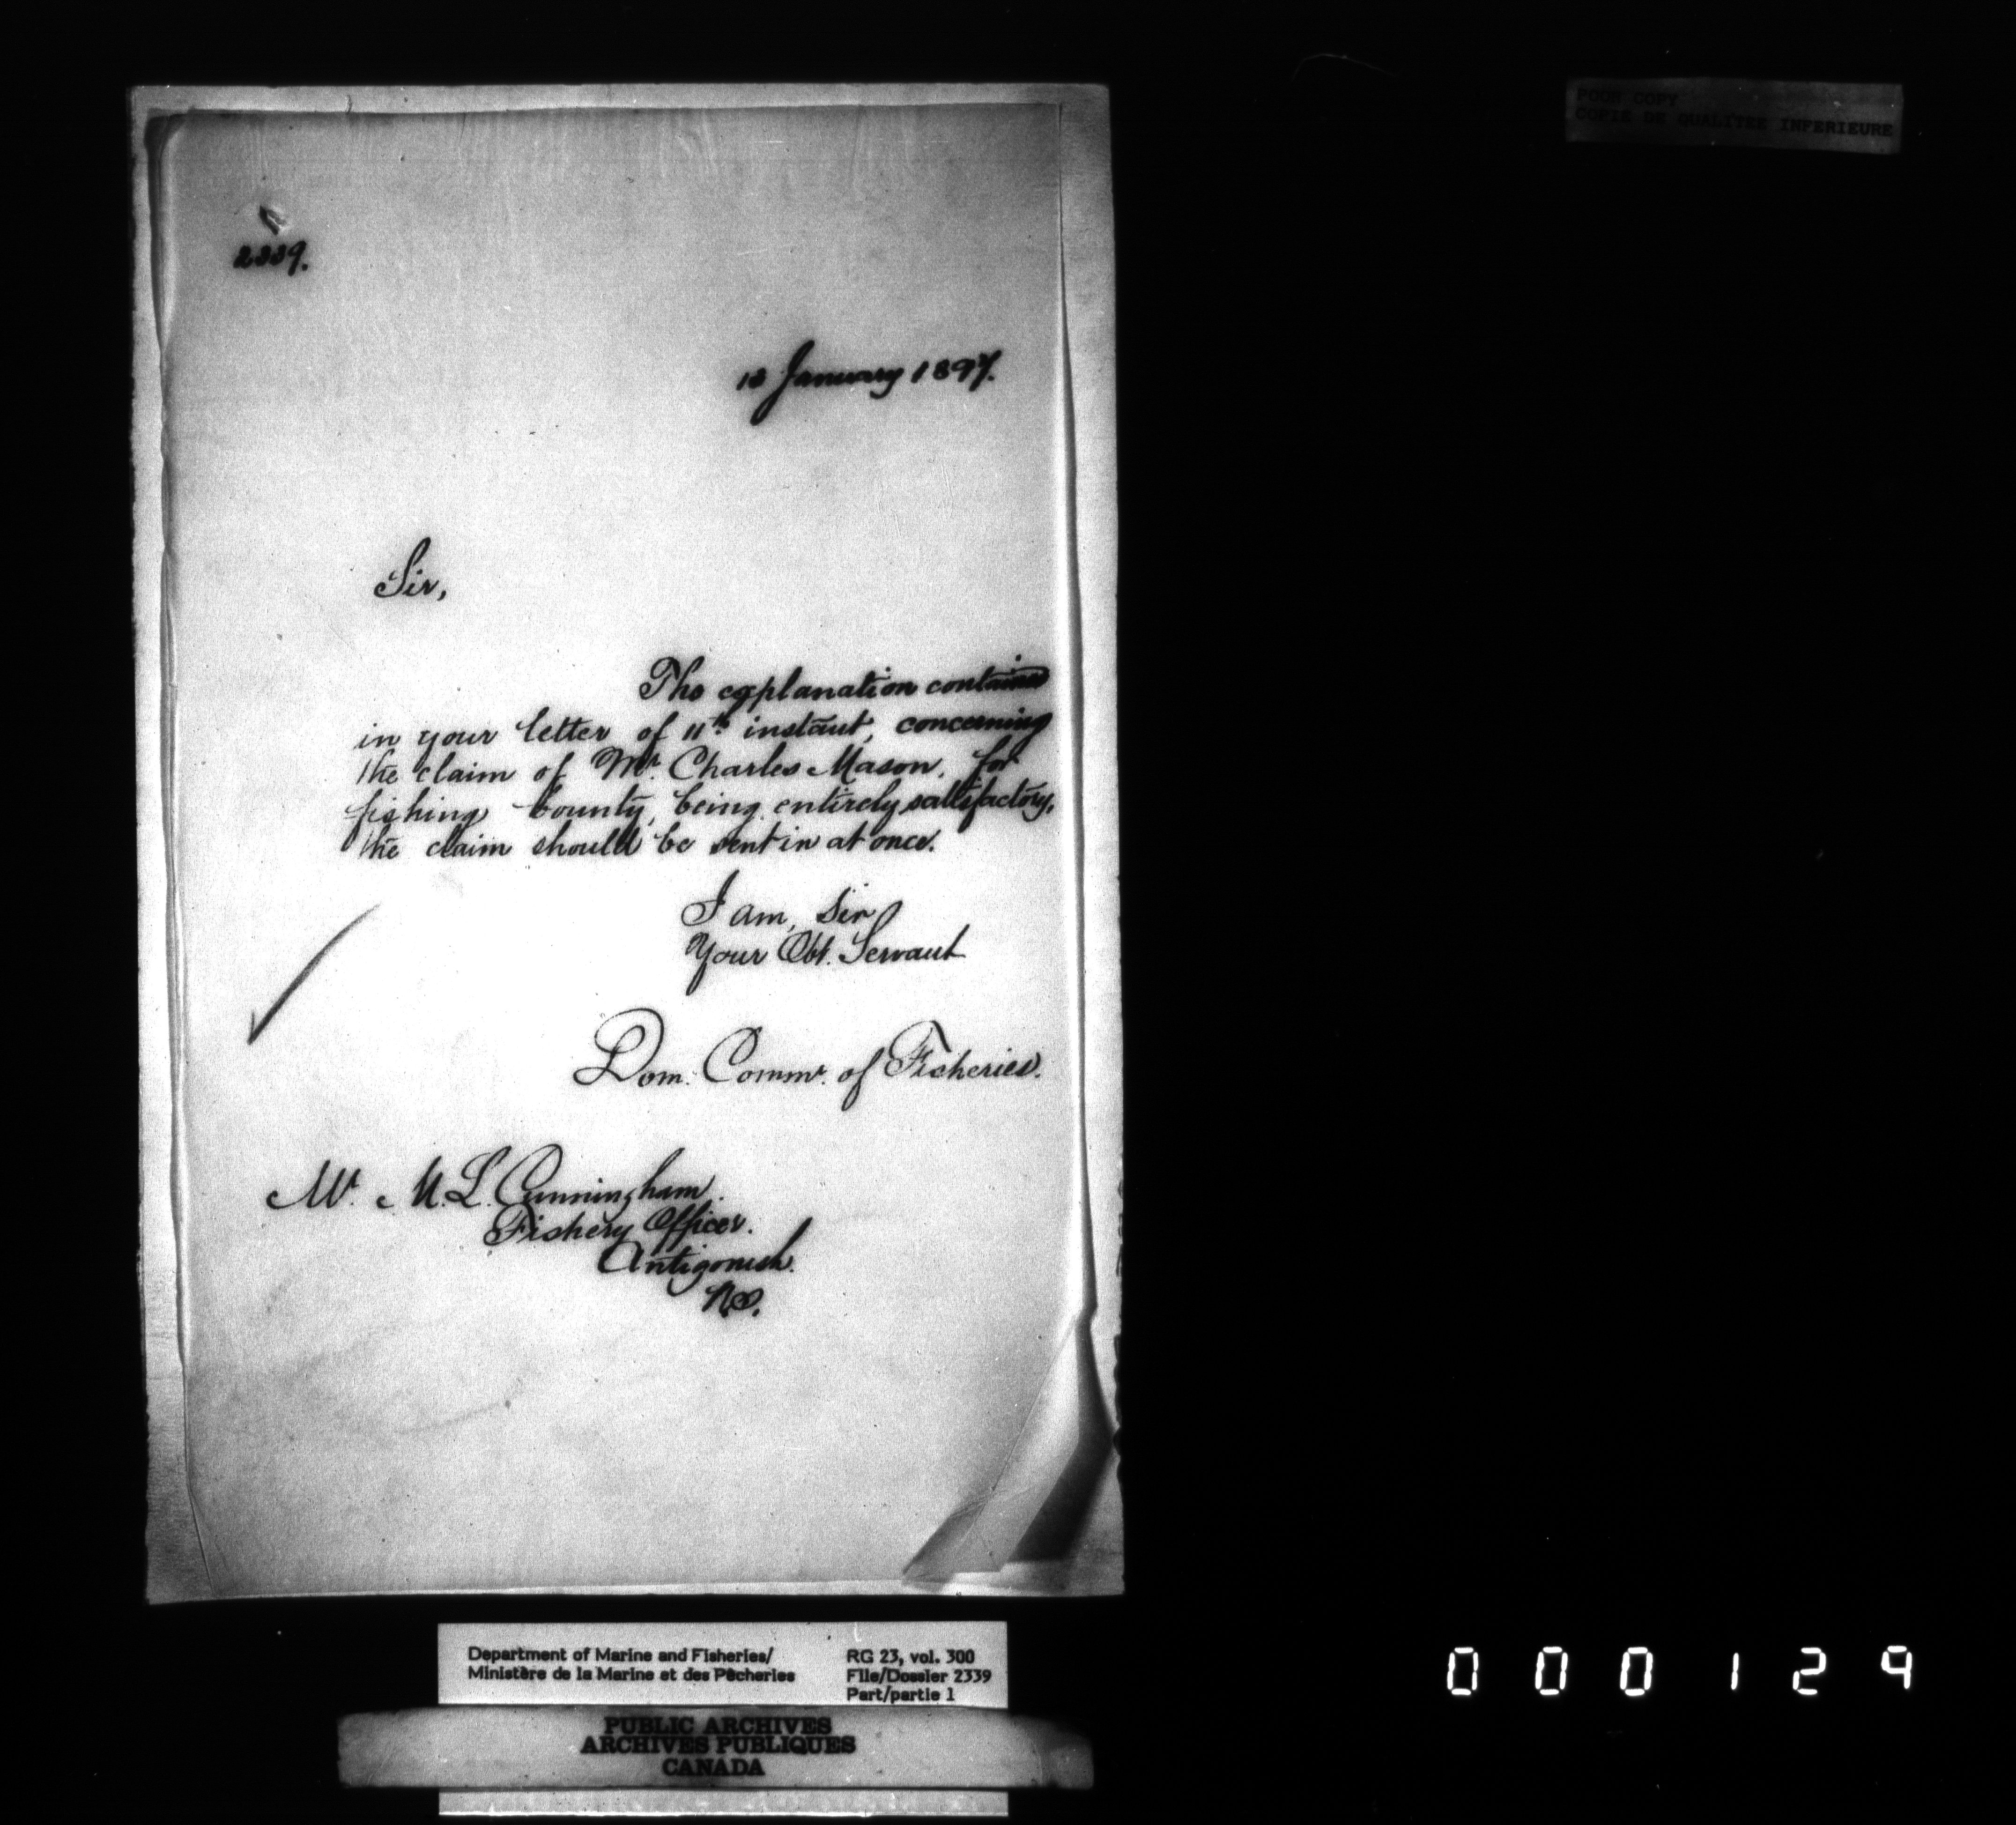 POOR COPY
COPIE DE QUALITEE INFERIEURE
2339.
January 1897.
Sir,
The explanation contained
in your letter of 11th instant, concerning
the claim of Mr. Charles Mason, for
fishing bounty, being entirely satisfactory,
the claim should be sent in at once.
I am, Sir
Your Obt. Servant
Dom. Commr. of Fisheries.
Mr. M. L. Cunningham.
Fishery Officer.
Antigonish.
N.S.
Department of Marine and Fisheries/
Ministère de la Marine et des Pêcheries
RG 23, vol. 300
File/Dossier 2339
Part/partie 1
PUBLIC ARCHIVES
ARCHIVES PUBLIQUES
CANADA
000129